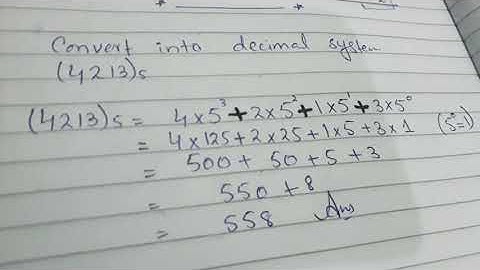 Convert into decimal system
(4213)5
(4213)5 = 4×5³+2×5²+1×5¹+3×5⁰
= 4×125+2×25+1×5+3×1 (5⁰=1)
= 500+ 50+5+3
= 550 +8
= 558 Ans